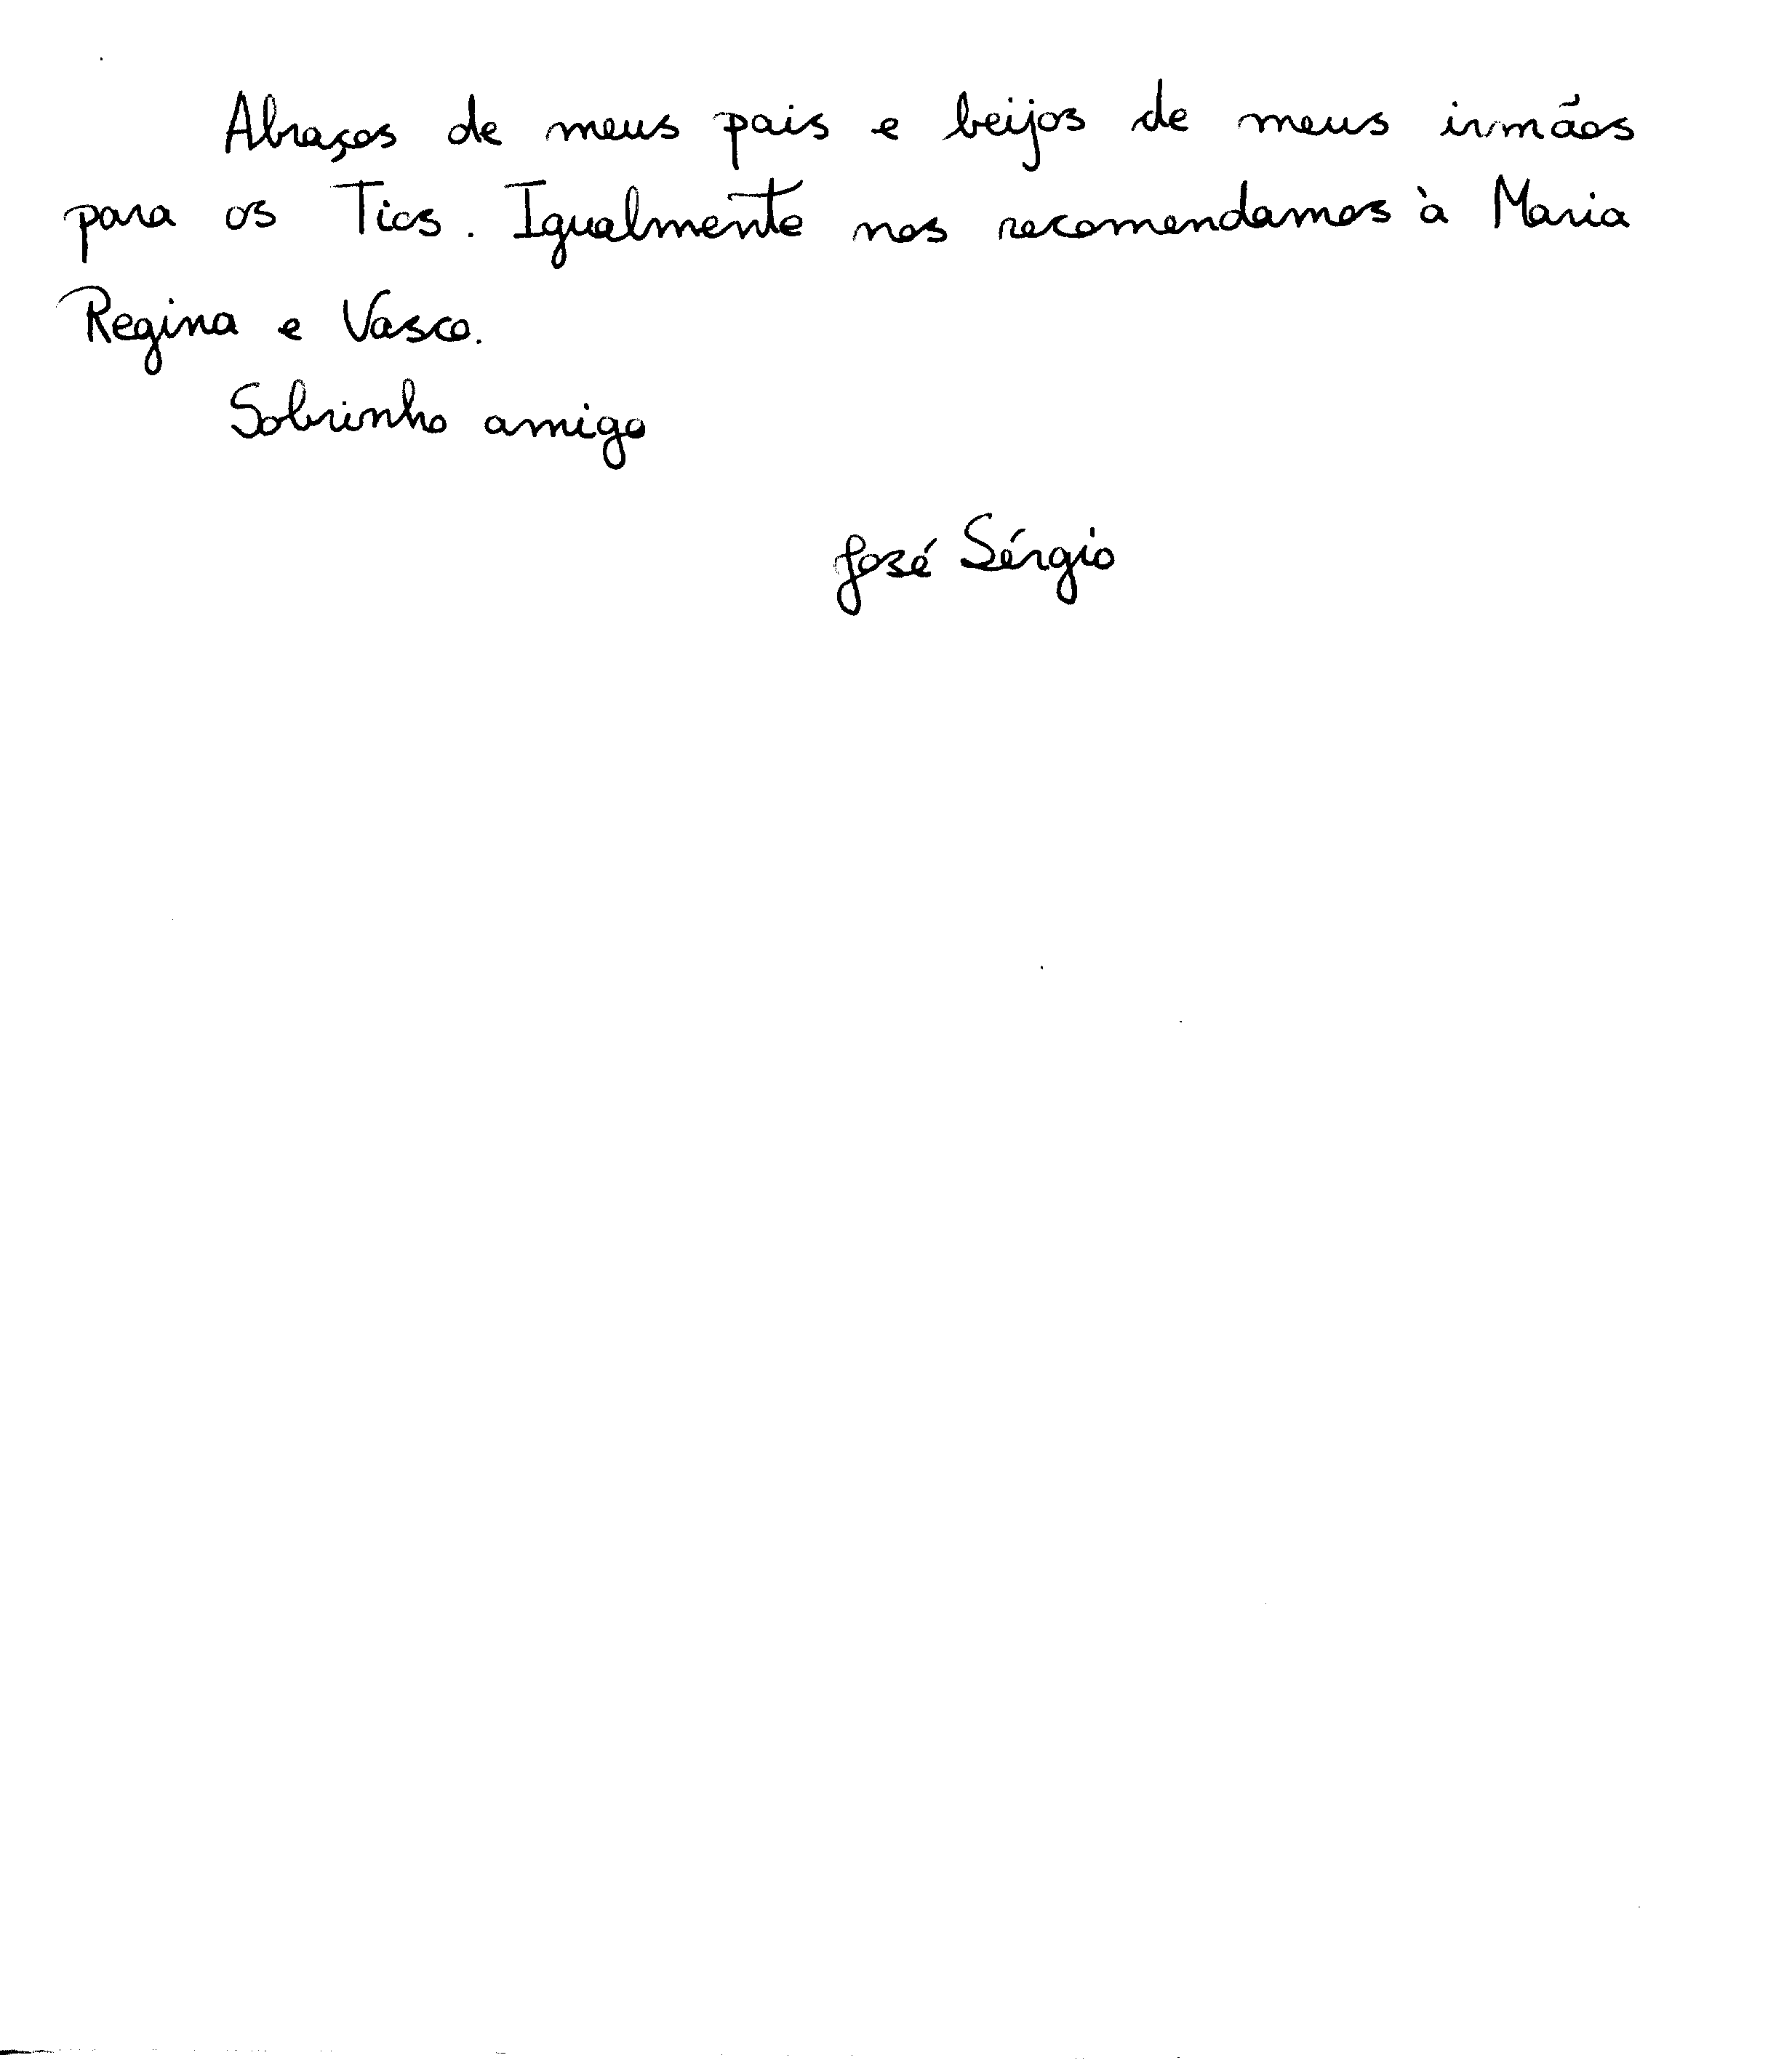 Abraços de meus pais e beijos de meus irmãos
para os Tios. Igualmente nos recomendamos à Maria
Regina e Vasco.
Sobrinho amigo
José Sérgio